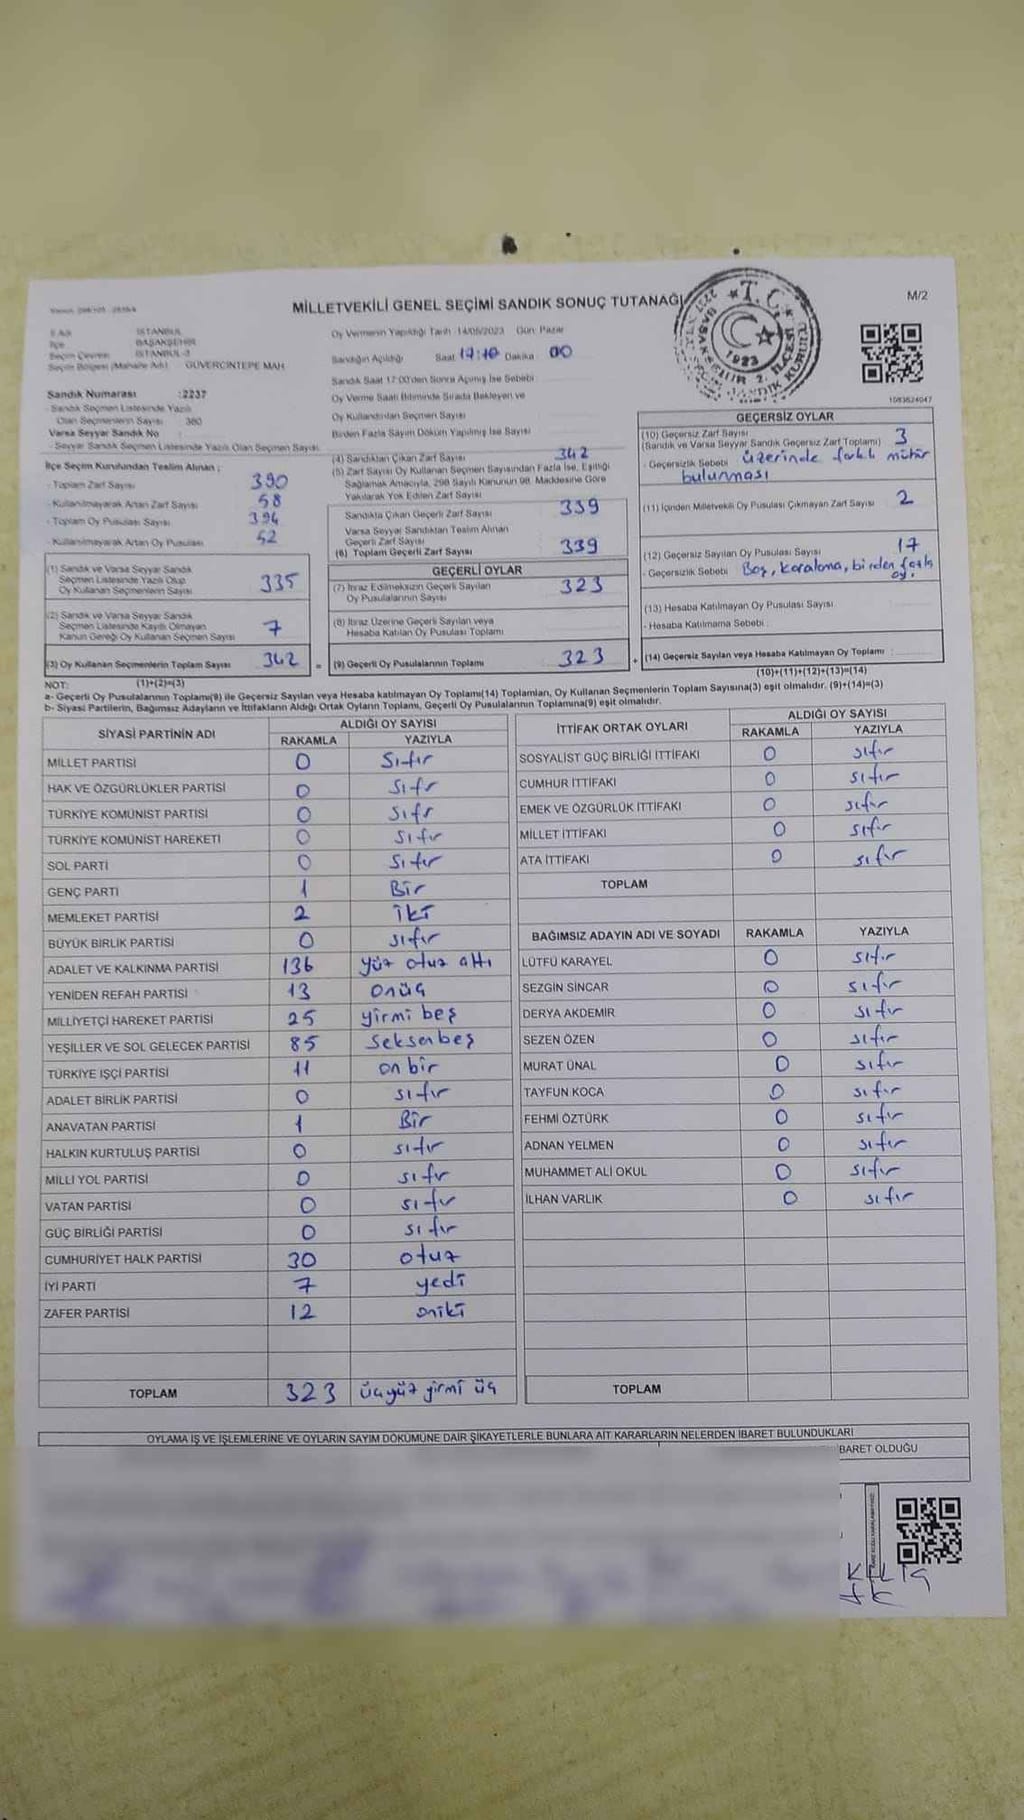 MİLLETVEKİLİ GENEL SEÇİMİ SANDIK SONUÇ TUTANAĞI
M/2
İli Adı İSTANBUL
İlçe BAŞAKŞEHİR
Seçim Çevresi İSTANBUL-3
Seçim Bölgesi (Mahalle Adı) GÜVERCİNTEPE MAH
Sandık Numarası :2237
- Sandık Seçmen Listesinde Yazılı
Olan Seçmenlerin Sayısı 380
Varsa Seyyar Sandık No
- Seyyar Sandık Seçmen Listesinde Yazılı Olan Seçmen Sayısı:
İlçe Seçim Kurulundan Teslim Alınan ;
- Toplam Zarf Sayısı 390
- Kullanılmayarak Artan Zarf Sayısı 58
- Toplam Oy Pusulası Sayısı 394
- Kullanılmayarak Artan Oy Pusulası 52
(1) Sandık ve Varsa Seyyar Sandık
Seçmen Listesinde Yazılı Olup
Oy Kullanan Seçmenlerin Sayısı 335
(2) Sandık ve Varsa Seyyar Sandık
Seçmen Listesinde Kayıtlı Olmayan
Kanun Gereği Oy Kullanan Seçmen Sayısı 7
(3) Oy Kullanan Seçmenlerin Toplam Sayısı 342 =
(1)+(2)=(3)
Oy Vermenin Yapıldığı Tarih 14/05/2023 Gün: Pazar
Sandığın Açıldığı Saat 17:10 Dakika 00
Sandık Saat 17:00'den Sonra Açımış İse Sebebi
Oy Verme Saati Bitiminde Sırada Bekleyen ve
Oy Kullandırılan Seçmen Sayısı
Birden Fazla Sayım Döküm Yapılmış İse Sayısı
(4) Sandıktan Çıkan Zarf Sayısı 342
(5) Zarf Sayısı Oy Kullanan Seçmen Sayısından Fazla İse, Eşitliği
Sağlamak Amacıyla, 298 Sayılı Kanunun 98. Maddesine Göre
Yakılarak Yok Edilen Zarf Sayısı
Sandıkta Çıkan Geçerli Zarf Sayısı 339
Varsa Seyyar Sandıktan Teslim Alınan
Geçerli Zarf Sayısı
(6) Toplam Geçerli Zarf Sayısı 339
GEÇERLİ OYLAR
(7) İtiraz Edilmeksizin Geçerli Sayılan
Oy Pusulalarının Sayısı 323
(8) İtiraz Üzerine Geçerli Sayılan veya
Hesaba Katılan Oy Pusulası Toplamı
(9) Geçerli Oy Pusulalarının Toplamı 323 +
T.C.
1923
1083624047
GEÇERSİZ OYLAR
(10) Geçersiz Zarf Sayısı
(Sandık ve Varsa Seyyar Sandık Geçersiz Zarf Toplamı) 3
- Geçersizlik Sebebi üzerinde farklı mühür
bulunması
(11) İçinden Milletvekili Oy Pusulası Çıkmayan Zarf Sayısı 2
(12) Geçersiz Sayılan Oy Pusulası Sayısı 17
- Geçersizlik Sebebi Boş, karalama, birden fazla
oy.
(13) Hesaba Katılmayan Oy Pusulası Sayısı
- Hesaba Katılmama Sebebi :
(14) Geçersiz Sayılan veya Hesaba Katılmayan Oy Toplamı :
(10)+(11)+(12)+(13)=(14)
NOT:
a- Geçerli Oy Pusulalarının Toplamı(9) ile Geçersiz Sayılan veya Hesaba katılmayan Oy Toplamı(14) Toplamları, Oy Kullanan Seçmenlerin Toplam Sayısına(3) eşit olmalıdır. (9)+(14)=(3)
b- Siyasi Partilerin, Bağımsız Adayların ve İttifakların Aldığı Ortak Oyların Toplamı, Geçerli Oy Pusulalarının Toplamına(9) eşit olmalıdır.
SİYASİ PARTİNİN ADI ALDIĞI OY SAYISI
RAKAMLA YAZIYLA
MİLLET PARTİSİ 0 Sıfır
HAK VE ÖZGÜRLÜKLER PARTİSİ 0 Sıfr
TÜRKİYE KOMÜNİST PARTİSİ 0 Sıfr
TÜRKİYE KOMÜNİST HAREKETİ 0 Sıfır
SOL PARTİ 0 Sıfır
GENÇ PARTİ 1 Bir
MEMLEKET PARTİSİ 2 İki
BÜYÜK BİRLİK PARTİSİ 0 sıfır
ADALET VE KALKINMA PARTİSİ 136 yüz otuz altı
YENİDEN REFAH PARTİSİ 13 onüç
MİLLİYETÇİ HAREKET PARTİSİ 25 yirmi beş
YEŞİLLER VE SOL GELECEK PARTİSİ 85 seksenbeş
TÜRKİYE İŞÇİ PARTİSİ 11 on bir
ADALET BİRLİK PARTİSİ 0 sıfır
ANAVATAN PARTİSİ 1 Bir
HALKIN KURTULUŞ PARTİSİ 0 sıfır
MİLLİ YOL PARTİSİ 0 sıfır
VATAN PARTİSİ 0 sıfır
GÜÇ BİRLİĞİ PARTİSİ 0 sıfır
CUMHURİYET HALK PARTİSİ 30 otuz
İYİ PARTİ 7 yedi
ZAFER PARTİSİ 12 oniki
TOPLAM 323 üçyüz yirmi üç
İTTİFAK ORTAK OYLARI ALDIĞI OY SAYISI
RAKAMLA YAZIYLA
SOSYALİST GÜÇ BİRLİĞİ İTTİFAKI 0 sıfır
CUMHUR İTTİFAKI 0 sıfır
EMEK VE ÖZGÜRLÜK İTTİFAKI 0 sıfır
MİLLET İTTİFAKI 0 sıfır
ATA İTTİFAKI 0 sıfır
TOPLAM
BAĞIMSIZ ADAYIN ADI VE SOYADI RAKAMLA YAZIYLA
LÜTFÜ KARAYEL 0 sıfır
SEZGİN SİNCAR 0 sıfır
DERYA AKDEMİR 0 sıfır
SEZEN ÖZEN 0 sıfır
MURAT ÜNAL 0 sıfır
TAYFUN KOCA 0 sıfır
FEHMİ ÖZTÜRK 0 sıfır
ADNAN YELMEN 0 sıfır
MUHAMMET ALİ OKUL 0 sıfır
İLHAN VARLIK 0 sıfır
TOPLAM
OYLAMA İŞ VE İŞLEMLERİNE VE OYLARIN SAYIM DÖKÜMÜNE DAİR ŞİKAYETLERLE BUNLARA AİT KARARLARIN NELERDEN İBARET BULUNDUKLARI
BARET OLDUĞU